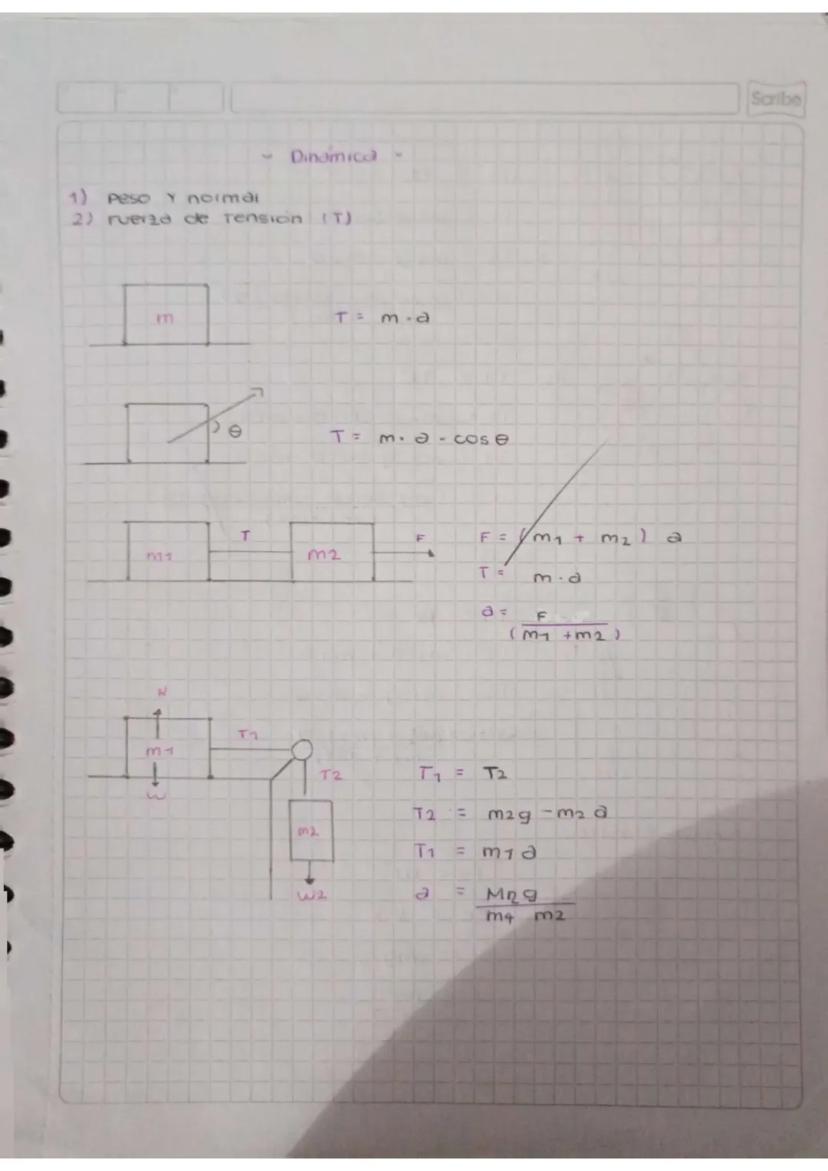 Scribe
~ Dinámica ~
1) Peso y normal
2) Fuerza de Tensión (T)
m
T = m · a
θ
T = m · a · cos θ
m1 T m2 F
F = (m1 + m2) a
T = m · a
a = F
(m1 + m2)
N
m1 T1
W T2
m2
W2
T1 = T2
T2 = m2g - m2 a
T1 = m1 a
a = M2 g
m1 m2